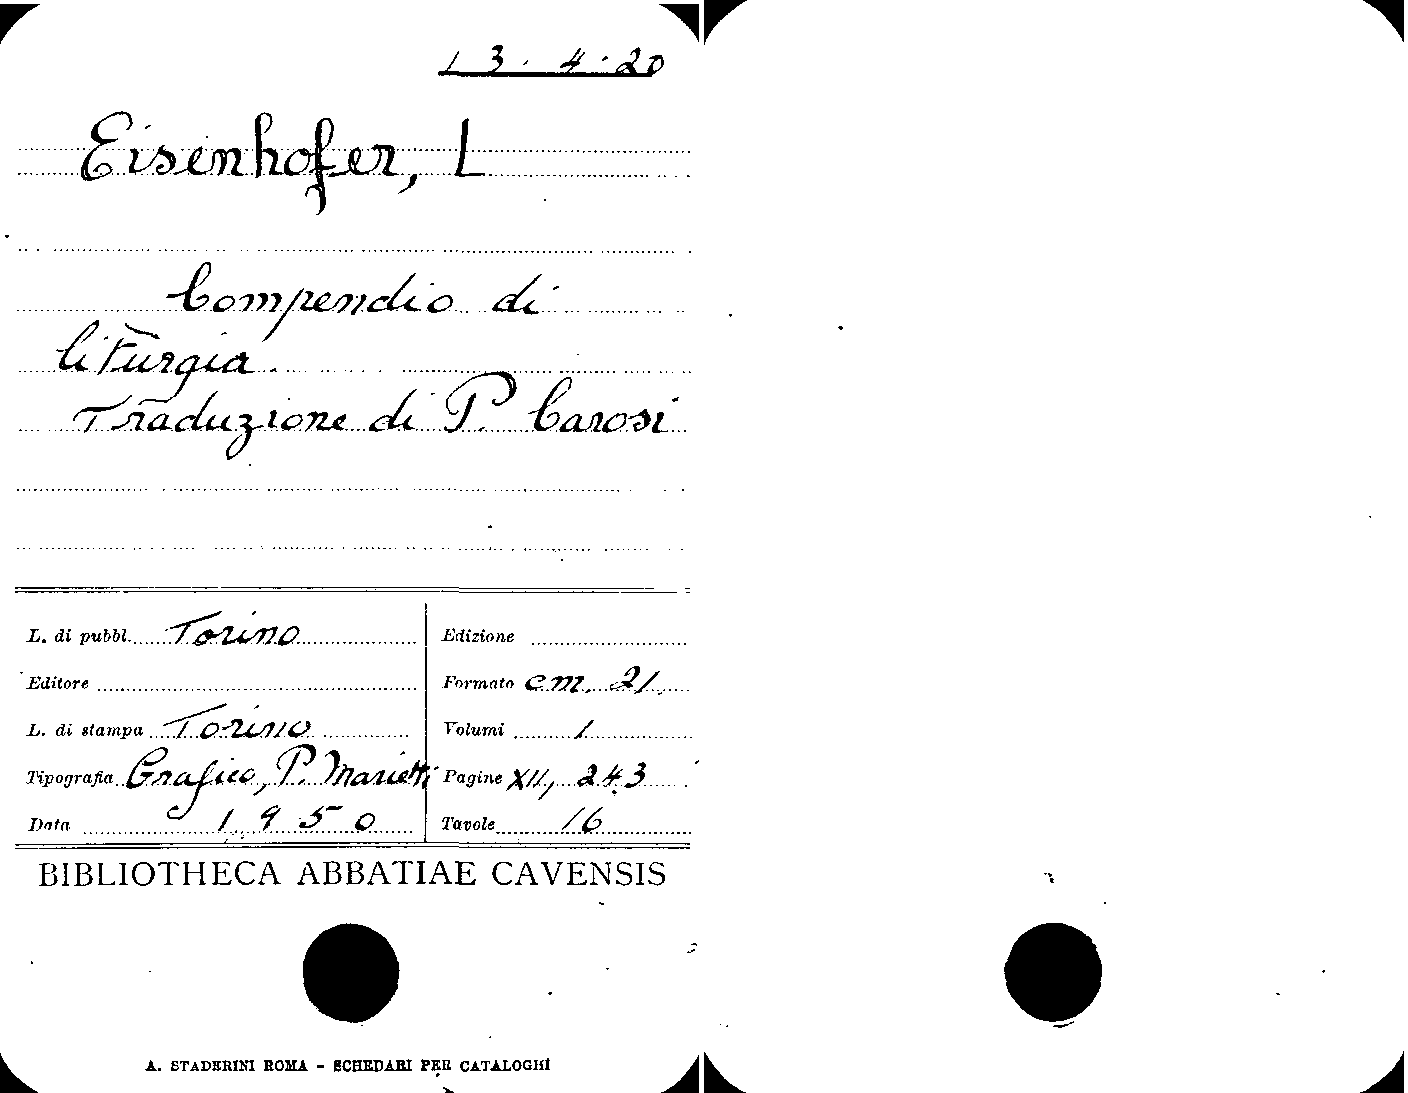 13.4.20
Eisenhofer, L
Compendio di
liturgia.
Traduzione di P. Carosi
L. di pubbl. Torino
Editore
L. di stampa Torino
Tipografia Grafico, P. Marietti
Data 1950
Edizione
Formato cm. 21
Volumi 1
Pagine XII, 243
Tavole 16
BIBLIOTHECA ABBATIAE CAVENSIS
A. STADERINI ROMA - SCHEDARI PER CATALOGHI